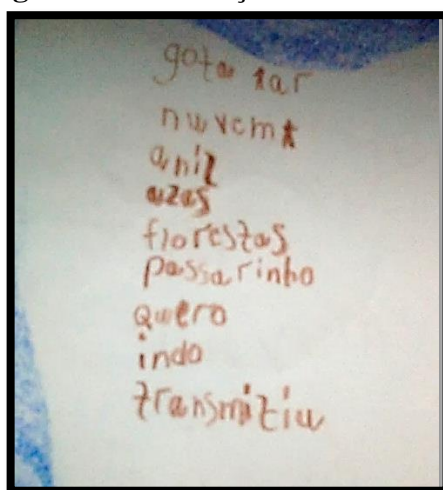 gota tar
nuvem
anil
azas
florestas
passarinho
quero
indo
transmitiu